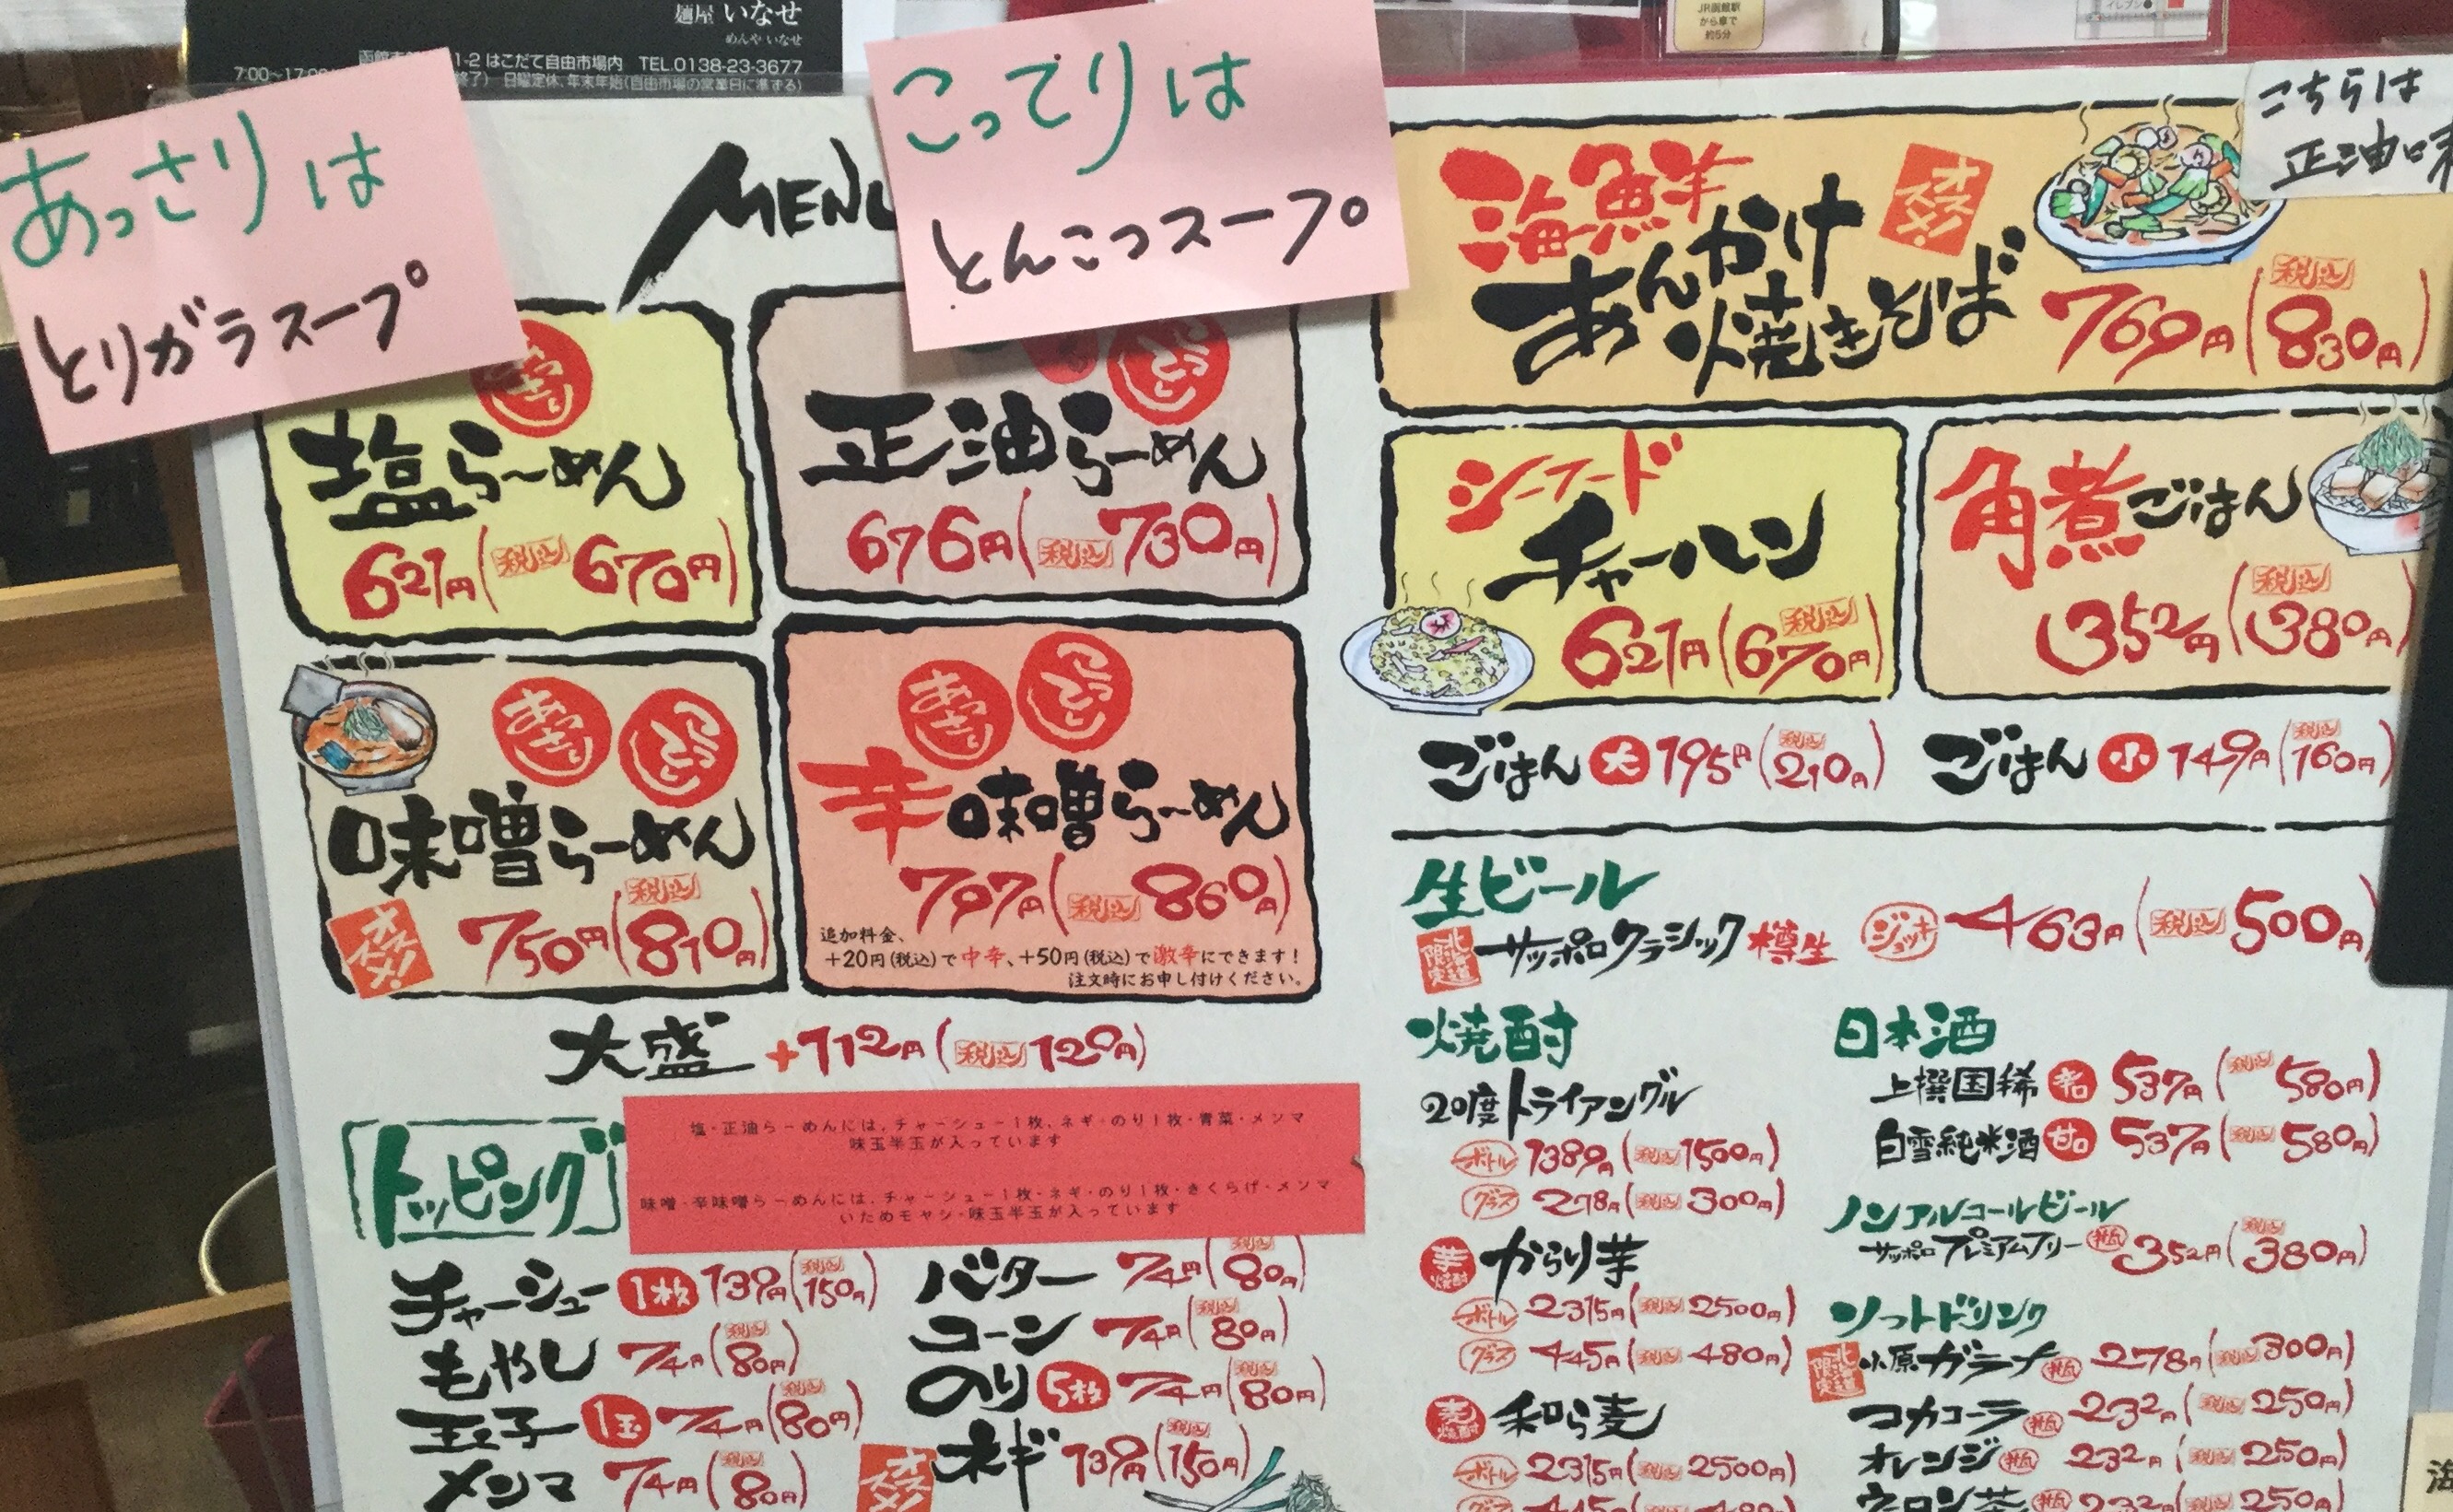 麺屋 いなせ
めんや いなせ
1-2 はこだて自由市場内 TEL.0138-23-3677
7:00~17:00
終了) 日曜定休、年末年始(自由市場の営業日に準ずる)
JR函館駅
から車で
約5分
イレブン
あっさりは
とりガラスープ
こってりは
とんこつスープ
MENU
あっさり
塩らーめん
621円(税込670円)
こってり
正油らーめん
676円(税込730円)
あっさり こってり
味噌らーめん
オススメ!
750円(税込810円)
あっさり こってり
辛味噌らーめん
797円(税込860円)
追加料金、
+20円(税込)で中辛、+50円(税込)で激辛にできます!
注文時にお申し付けください。
大盛 +112円(税込120円)
トッピング
塩・正油らーめんには、チャーシュー1枚、ネギ・のり1枚・青菜・メンマ
味玉半玉が入っています
味噌・辛味噌らーめんには、チャーシュー1枚・ネギ・のり1枚・きくらげ・メンマ
いためモヤシ・味玉半玉が入っています
チャーシュー 1枚 139円(税込150円)
もやし 74円(税込80円)
玉子 1玉 74円(税込80円)
メンマ 74円(税込80円)
バター 74円(税込80円)
コーン 74円(税込80円)
のり 5枚 74円(税込80円)
オススメ! ネギ 139円(税込150円)
こちらは
正油味
海鮮
あんかけ
焼きそば
オススメ!
769円(税込830円)
シーフード
チャーハン
621円(税込670円)
角煮ごはん
352円(税込380円)
ごはん 大 195円(税込210円)
ごはん 小 149円(税込160円)
生ビール
北海道限定 サッポロクラシック樽生 ジョッキ 463円(税込500円)
焼酎
20度トライアングル
ボトル 1389円(税込1500円)
グラス 278円(税込300円)
芋焼酎 からり芋
ボトル 2315円(税込2500円)
グラス 445円(税込480円)
麦焼酎 和ら麦
ボトル 2315円(税込2500円)
グラス 445円(税込480円)
日本酒
上撰国稀 辛口 537円(税込580円)
白雪純米酒 甘口 537円(税込580円)
ノンアルコールビール
サッポロプレミアムフリー 瓶 352円(税込380円)
ソフトドリンク
北海道限定 小原ガラナ 瓶 278円(税込300円)
コカコーラ 瓶 232円(税込250円)
オレンジ 瓶 232円(税込250円)
ウーロン茶 瓶 232円(税込250円)
海